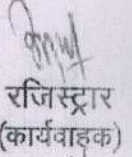 रजिस्ट्रार
(कार्यवाहक)